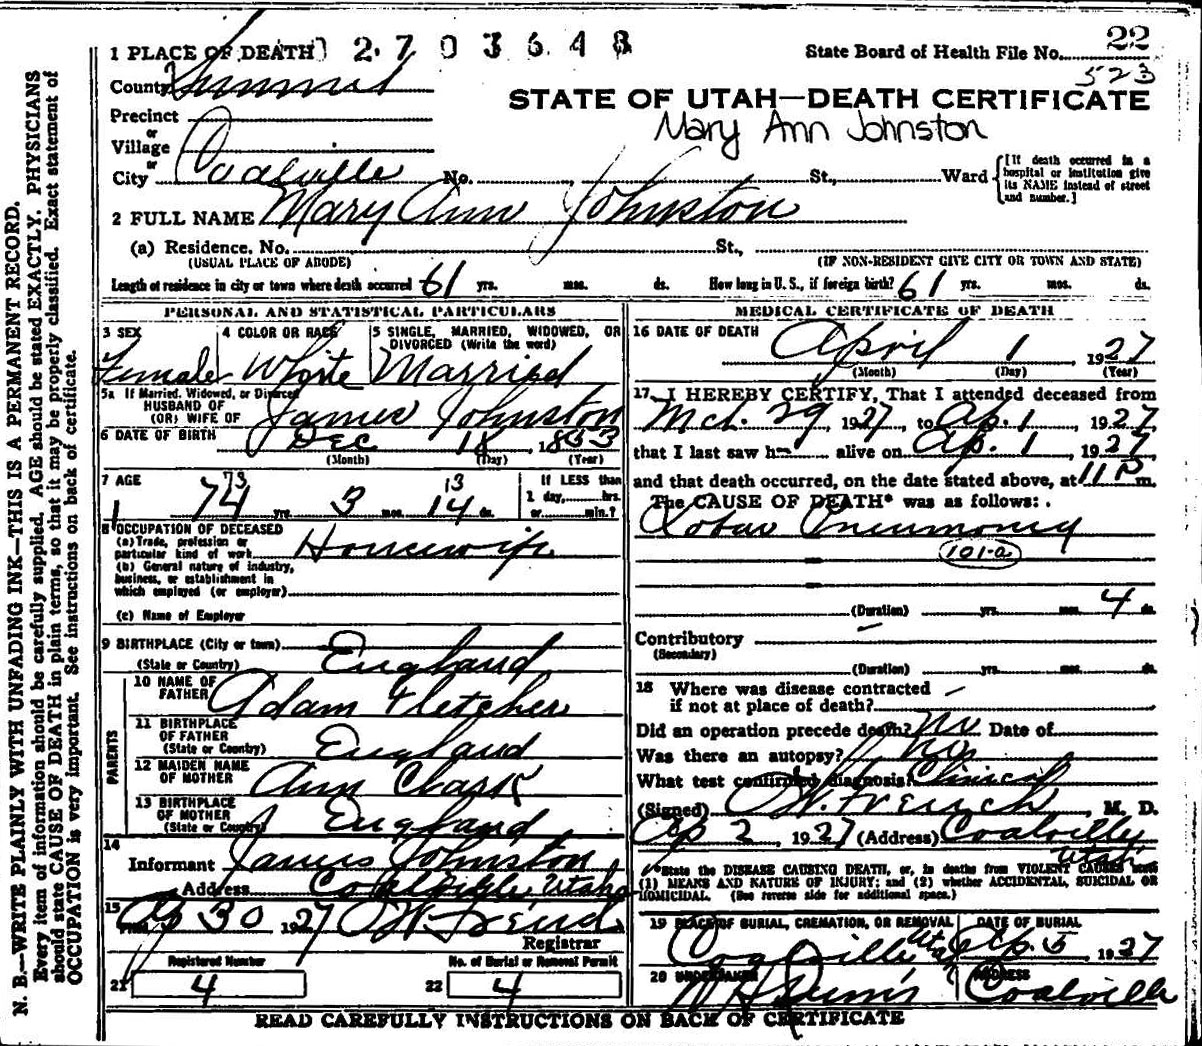 1 PLACE OF DEATH 0 2 7 0 3 6 4 8 State Board of Health File No. 22
523
County Summit
STATE OF UTAH—DEATH CERTIFICATE
Precinct
or
Village
Mary Ann Johnston
or
City Coalville No. St., Ward [If death occurred in a hospital or institution give its NAME instead of street and number.]
2 FULL NAME Mary Ann Johnston
(a) Residence, No. St.,
(USUAL PLACE OF ABODE) (IF NON-RESIDENT GIVE CITY OR TOWN AND STATE)
Length of residence in city or town where death occurred 61 yrs. mos. ds. How long in U. S., if foreign birth? 61 yrs. mos. ds.
PERSONAL AND STATISTICAL PARTICULARS
3 SEX
Female
4 COLOR OR RACE
White
5 SINGLE, MARRIED, WIDOWED, OR
DIVORCED (Write the word)
Married
5a If Married, Widowed, or Divorced
HUSBAND OF
(OR) WIFE OF James Johnston
6 DATE OF BIRTH Dec 18 1853
(Month) (Day) (Year)
7 AGE 73 13
74 yrs. 3 mos. 14 ds.
If LESS than
1 day, hrs.
or min.?
8 OCCUPATION OF DECEASED
(a) Trade, profession or
particular kind of work Housewife
(b) General nature of industry,
business, or establishment in
which employed (or employer)
(c) Name of Employer
9 BIRTHPLACE (City or town)
(State or Country) England
PARENTS
10 NAME OF
FATHER Adam Fletcher
11 BIRTHPLACE
OF FATHER
(State or Country) England
12 MAIDEN NAME
OF MOTHER Ann Clark
13 BIRTHPLACE
OF MOTHER
(State or Country) England
14
Informant James Johnston
Address Coalville, Utah
15
Filed Ap 30 1927
Registrar
21 Registered Number
4
22 No. of Burial or Removal Permit
4
MEDICAL CERTIFICATE OF DEATH
16 DATE OF DEATH
April 1, 1927
(Month) (Day) (Year)
17 I HEREBY CERTIFY, That I attended deceased from
Mch. 29, 1927, to Ap. 1 1927
that I last saw her alive on Ap. 1 1927
and that death occurred, on the date stated above, at 11 P m.
The CAUSE OF DEATH* was as follows:
Lobar Pneumony
101-a
(Duration) yrs. mos. 4 ds.
Contributory —
(Secondary)
(Duration) yrs. mos. ds.
18 Where was disease contracted
if not at place of death? —
Did an operation precede death? No Date of
Was there an autopsy? No
What test confirmed diagnosis? Clinical
(Signed) French, M. D.
Ap 2, 1927 (Address) Coalville
Utah
*State the DISEASE CAUSING DEATH, or, in deaths from VIOLENT CAUSES state
(1) MEANS AND NATURE OF INJURY; and (2) whether ACCIDENTAL, SUICIDAL OR
HOMICIDAL. (See reverse side for additional space.)
19 PLACE OF BURIAL, CREMATION, OR REMOVAL
Coalville Utah
DATE OF BURIAL
Ap. 5 1927
20 UNDERTAKER
ADDRESS
Coalville
READ CAREFULLY INSTRUCTIONS ON BACK OF CERTIFICATE
N. B.—WRITE PLAINLY WITH UNFADING INK—THIS IS A PERMANENT RECORD.
Every item of information should be carefully supplied. AGE should be stated EXACTLY. PHYSICIANS
should state CAUSE OF DEATH in plain terms, so that it may be properly classified. Exact statement of
OCCUPATION is very important. See instructions on back of certificate.